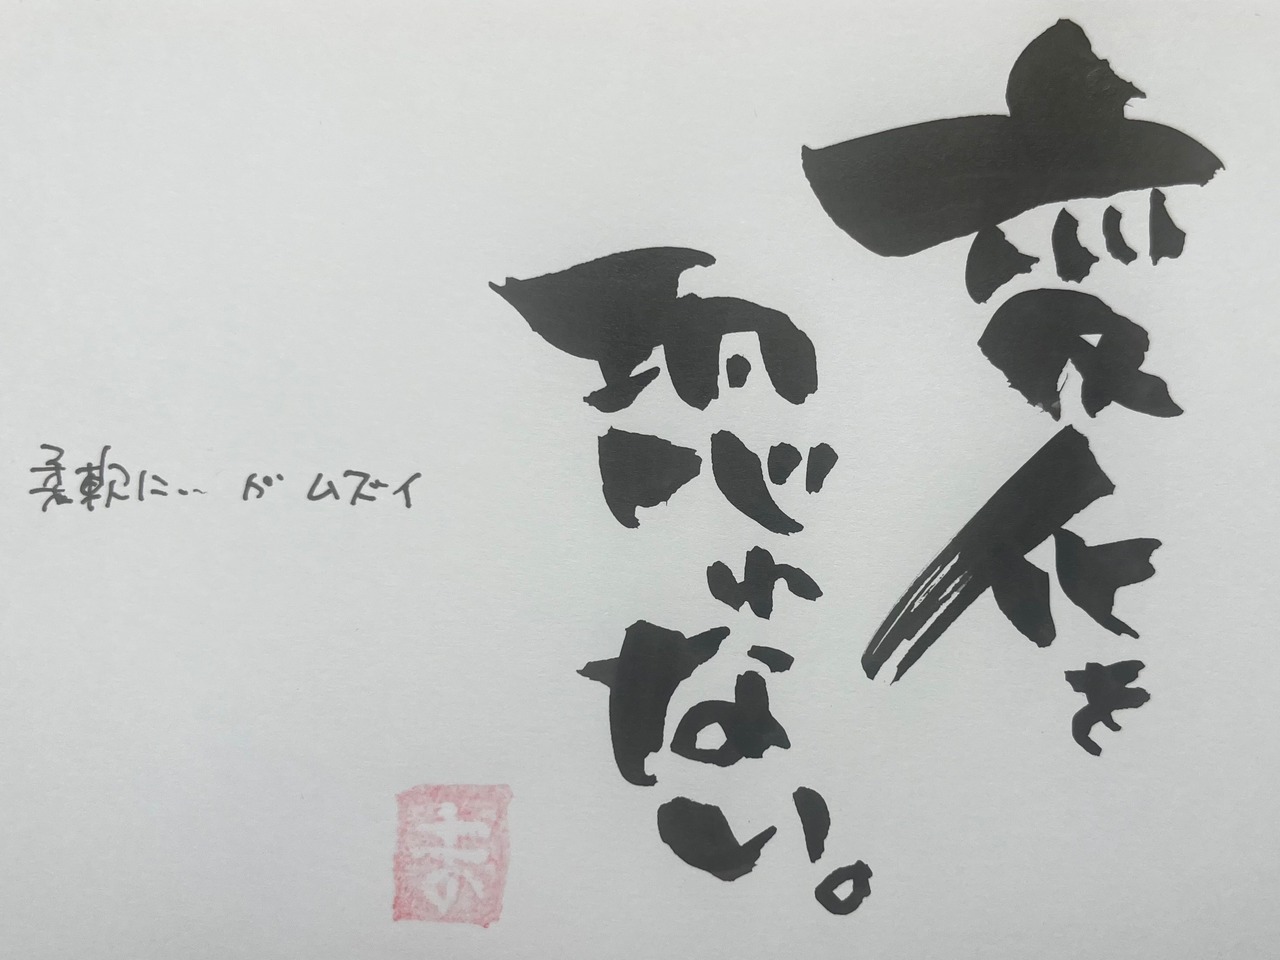 変化を
恐れない。
柔軟に‥ が ムズイ